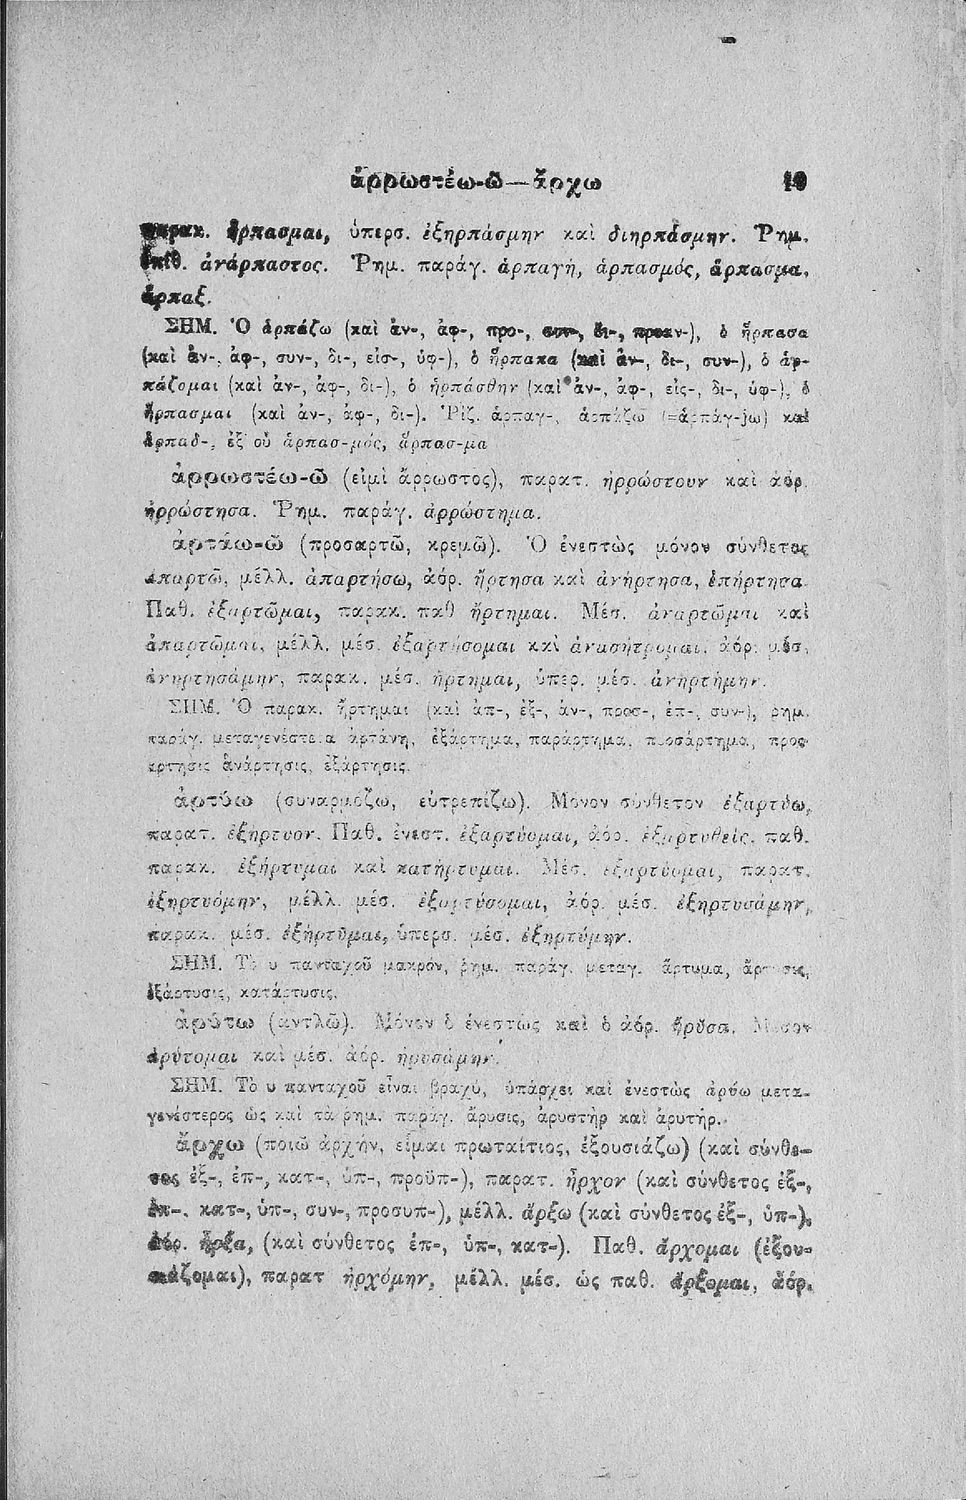 ἀρρωστέω-ῶ—ἄρχω 19
παρακ. ἥρπασμαι, ὑπερσ. ἐξηρπάσμην καὶ διηρπάσμην. Ῥημ.
ἐπίθ. ἀνάρπαστος. Ῥημ. παράγ. ἁρπαγή, ἁρπασμός, ἅρπασμα,
ἅρπαξ.
ΣΗΜ. Ὁ ἁρπάζω (καὶ ἀν-, ἀφ-, προ-, συν-, δι-, προαν-), ὁ ἥρπασα
(καὶ ἀν-, ἀφ-, συν-, δι-, εἰσ-, ὑφ-), ὁ ἥρπακα (καὶ ἀν-, δι-, συν-), ὁ ἁρ-
πάζομαι (καὶ ἀν-, ἀφ-, δι-), ὁ ἡρπάσθην (καὶ ἀν-, ἀφ-, εἰς-, δι-, ὑφ-), ὁ
ἥρπασμαι (καὶ ἀν-, ἀφ-, δι-). Ῥίζ. ἁρπαγ-, ἁρπάζω (=ἁρπάγ-jω) καὶ
ἁρπαδ-, ἐξ οὗ ἁρπασ-μός, ἅρπασ-μα
ἀρρωστέω-ῶ (εἰμὶ ἄρρωστος), παρατ. ἠρρώστουν καὶ ἀόρ.
ἠρρώστησα. Ῥημ. παράγ. ἀρρώστημα.
ἀρτάω-ῶ (προσαρτῶ, κρεμῶ). Ὁ ἐνεστὼς μόνον σύνθετος
ἀπαρτῶ, μέλλ. ἀπαρτήσω, ἀόρ. ἤρτησα καὶ ἀνήρτησα, ἐπήρτησα.
Παθ. ἐξαρτῶμαι, παρακ. παθ ἤρτημαι. Μέσ. ἀναρτῶμαι καὶ
ἀπαρτῶμαι, μέλλ. μέσ. ἐξαρτήσομαι καὶ ἀόρ. μέσ.
ἀνηρτησάμην, παρακ. μέσ. ἤρτημαι, ὑπερ. μέσ. ἀνηρτήμην.
ΣΗΜ. Ὁ παρακ. ἤρτημαι (καὶ ἀπ-, ἐξ-, ἀν-, προσ-, ἐπ-, συν-), ρημ.
παράγ. μεταγενέστερα ἀρτάνη, ἐξάρτημα, παράρτημα, προσάρτημα, προσ-
άρτησις ἀνάρτησις, ἐξάρτησις.
ἀρτύω (συναρμόζω, εὐτρεπίζω). Μόνον σύνθετον ἐξαρτύω,
παρατ. ἐξήρτυον. Παθ. ἐνεστ. ἐξαρτύομαι, ἀόρ. ἐξαρτυθείς, παθ.
παρακ. ἐξήρτυμαι καὶ κατήρτυμαι. Μέσ. ἐξαρτύομαι, παρατ.
ἐξηρτυόμην, μέλλ. μέσ. ἐξαρτύσομαι, ἀόρ. μέσ. ἐξηρτυσάμην,
παρακ. μέσ. ἐξήρτυμαι, ὑπερσ. μέσ. ἐξηρτύμην.
ΣΗΜ. Τὸ υ πανταχοῦ μακρόν, ῥημ. παράγ. μεταγ. ἄρτυμα, ἄρτυσις,
ἐξάρτυσις, κατάρτυσις.
ἀρύτω (ἀντλῶ). Μόνον ὁ ἐνεστὼς καὶ ὁ ἀόρ. ἤρυσα. Μέσον
ἀρύτομαι καὶ μέσ. ἀόρ. ἠρυσάμην.
ΣΗΜ. Τὸ υ πανταχοῦ εἶναι βραχύ, ὑπάρχει καὶ ἐνεστὼς ἀρύω μετα-
γενέστερος ὡς καὶ τὰ ρημ. παράγ. ἄρυσις, ἀρυστὴρ καὶ ἀρυτήρ.
ἄρχω (ποιῶ ἀρχήν, εἶμαι πρωταίτιος, ἐξουσιάζω) (καὶ σύνθε-
τος ἐξ-, ἐπ-, κατ-, ὑπ-, προϋπ-), παρατ. ἦρχον (καὶ σύνθετος ἐξ-,
ἐπ-, κατ-, ὑπ-, συν-, προσυπ-), μέλλ. ἄρξω (καὶ σύνθετος ἐξ-, ὑπ-),
ἀόρ. ἦρξα, (καὶ σύνθετος ἐπ-, ὑπ-, κατ-). Παθ. ἄρχομαι (ἐξου-
σιάζομαι), παρατ ἠρχόμην, μέλλ. μέσ. ὡς παθ. ἄρξομαι, ἀόρ.